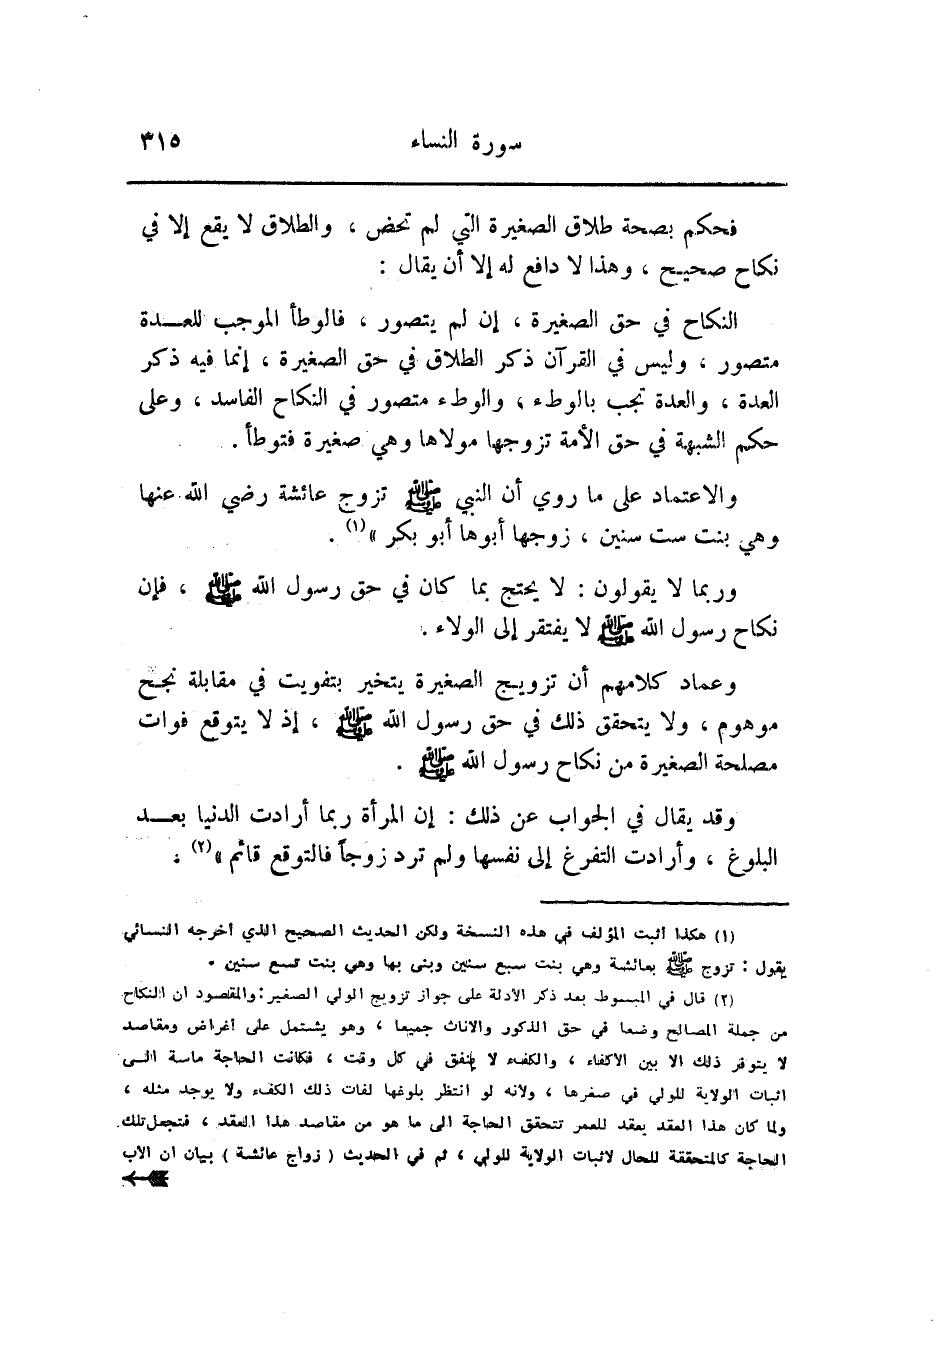 سورة النساء ٣١٥
فحكم بصحة طلاق الصغيرة التي لم تحض ، والطلاق لا يقع إلا في
نكاح صحيح ، وهذا لا دافع له إلا أن يقال :
النكاح في حق الصغيرة ، إن لم يتصور ، فالوطأ الموجب للعدة
متصور ، وليس في القرآن ذكر الطلاق في حق الصغيرة ، إنما فيه ذكر
العدة ، والعدة تجب بالوطء ، والوطء متصور في النكاح الفاسد ، وعلى
حكم الشبهة في حق الأمة تزوجها مولاها وهي صغيرة فتوطأ .
والاعتماد على ما روي أن النبي ﷺ تزوج عائشة رضي الله عنها
وهي بنت ست سنين ، زوجها أبوها أبو بكر »(١) .
وربما لا يقولون : لا يحتج بما كان في حق رسول الله ﷺ ، فإن
نكاح رسول الله ﷺ لا يفتقر إلى الولاء .
وعماد كلامهم أن تزويج الصغيرة يتخير بتفويت في مقابلة نجح
موهوم ، ولا يتحقق ذلك في حق رسول الله ﷺ ، إذ لا يتوقع فوات
مصلحة الصغيرة من نكاح رسول الله ﷺ .
وقد يقال في الجواب عن ذلك : إن المرأة ربما أرادت الدنيا بعد
البلوغ ، وأرادت التفرغ إلى نفسها ولم ترد زوجاً فالتوقع قائم »(٢) .
(١) هكذا أثبت المؤلف في هذه النسخة ولكن الحديث الصحيح الذي أخرجه النسائي
يقول : تزوج ﷺ بعائشة وهي بنت سبع سنين وبنى بها وهي بنت تسع سنين .
(٢) قال في المبسوط بعد ذكر الأدلة على جواز تزويج الولي الصغير : والمقصود ان النكاح
من جملة المصالح وضعا في حق الذكور والاناث جميعا ، وهو يشتمل على أغراض ومقاصد
لا يتوفر ذلك الا بين الاكفاء ، والكفء لا يتفق في كل وقت ، فكانت الحاجة ماسة الى
اثبات الولاية للولي في صغرها ، ولانه لو انتظر بلوغها لفات ذلك الكفء ولا يوجد مثله ،
ولما كان هذا العقد يعقد للعمر تتحقق الحاجة الى ما هو من مقاصد هذا العقد ، فتجعل تلك
الحاجة كالمتحققة للحال لاثبات الولاية للولي ، ثم في الحديث ( زواج عائشة ) بيان ان الاب